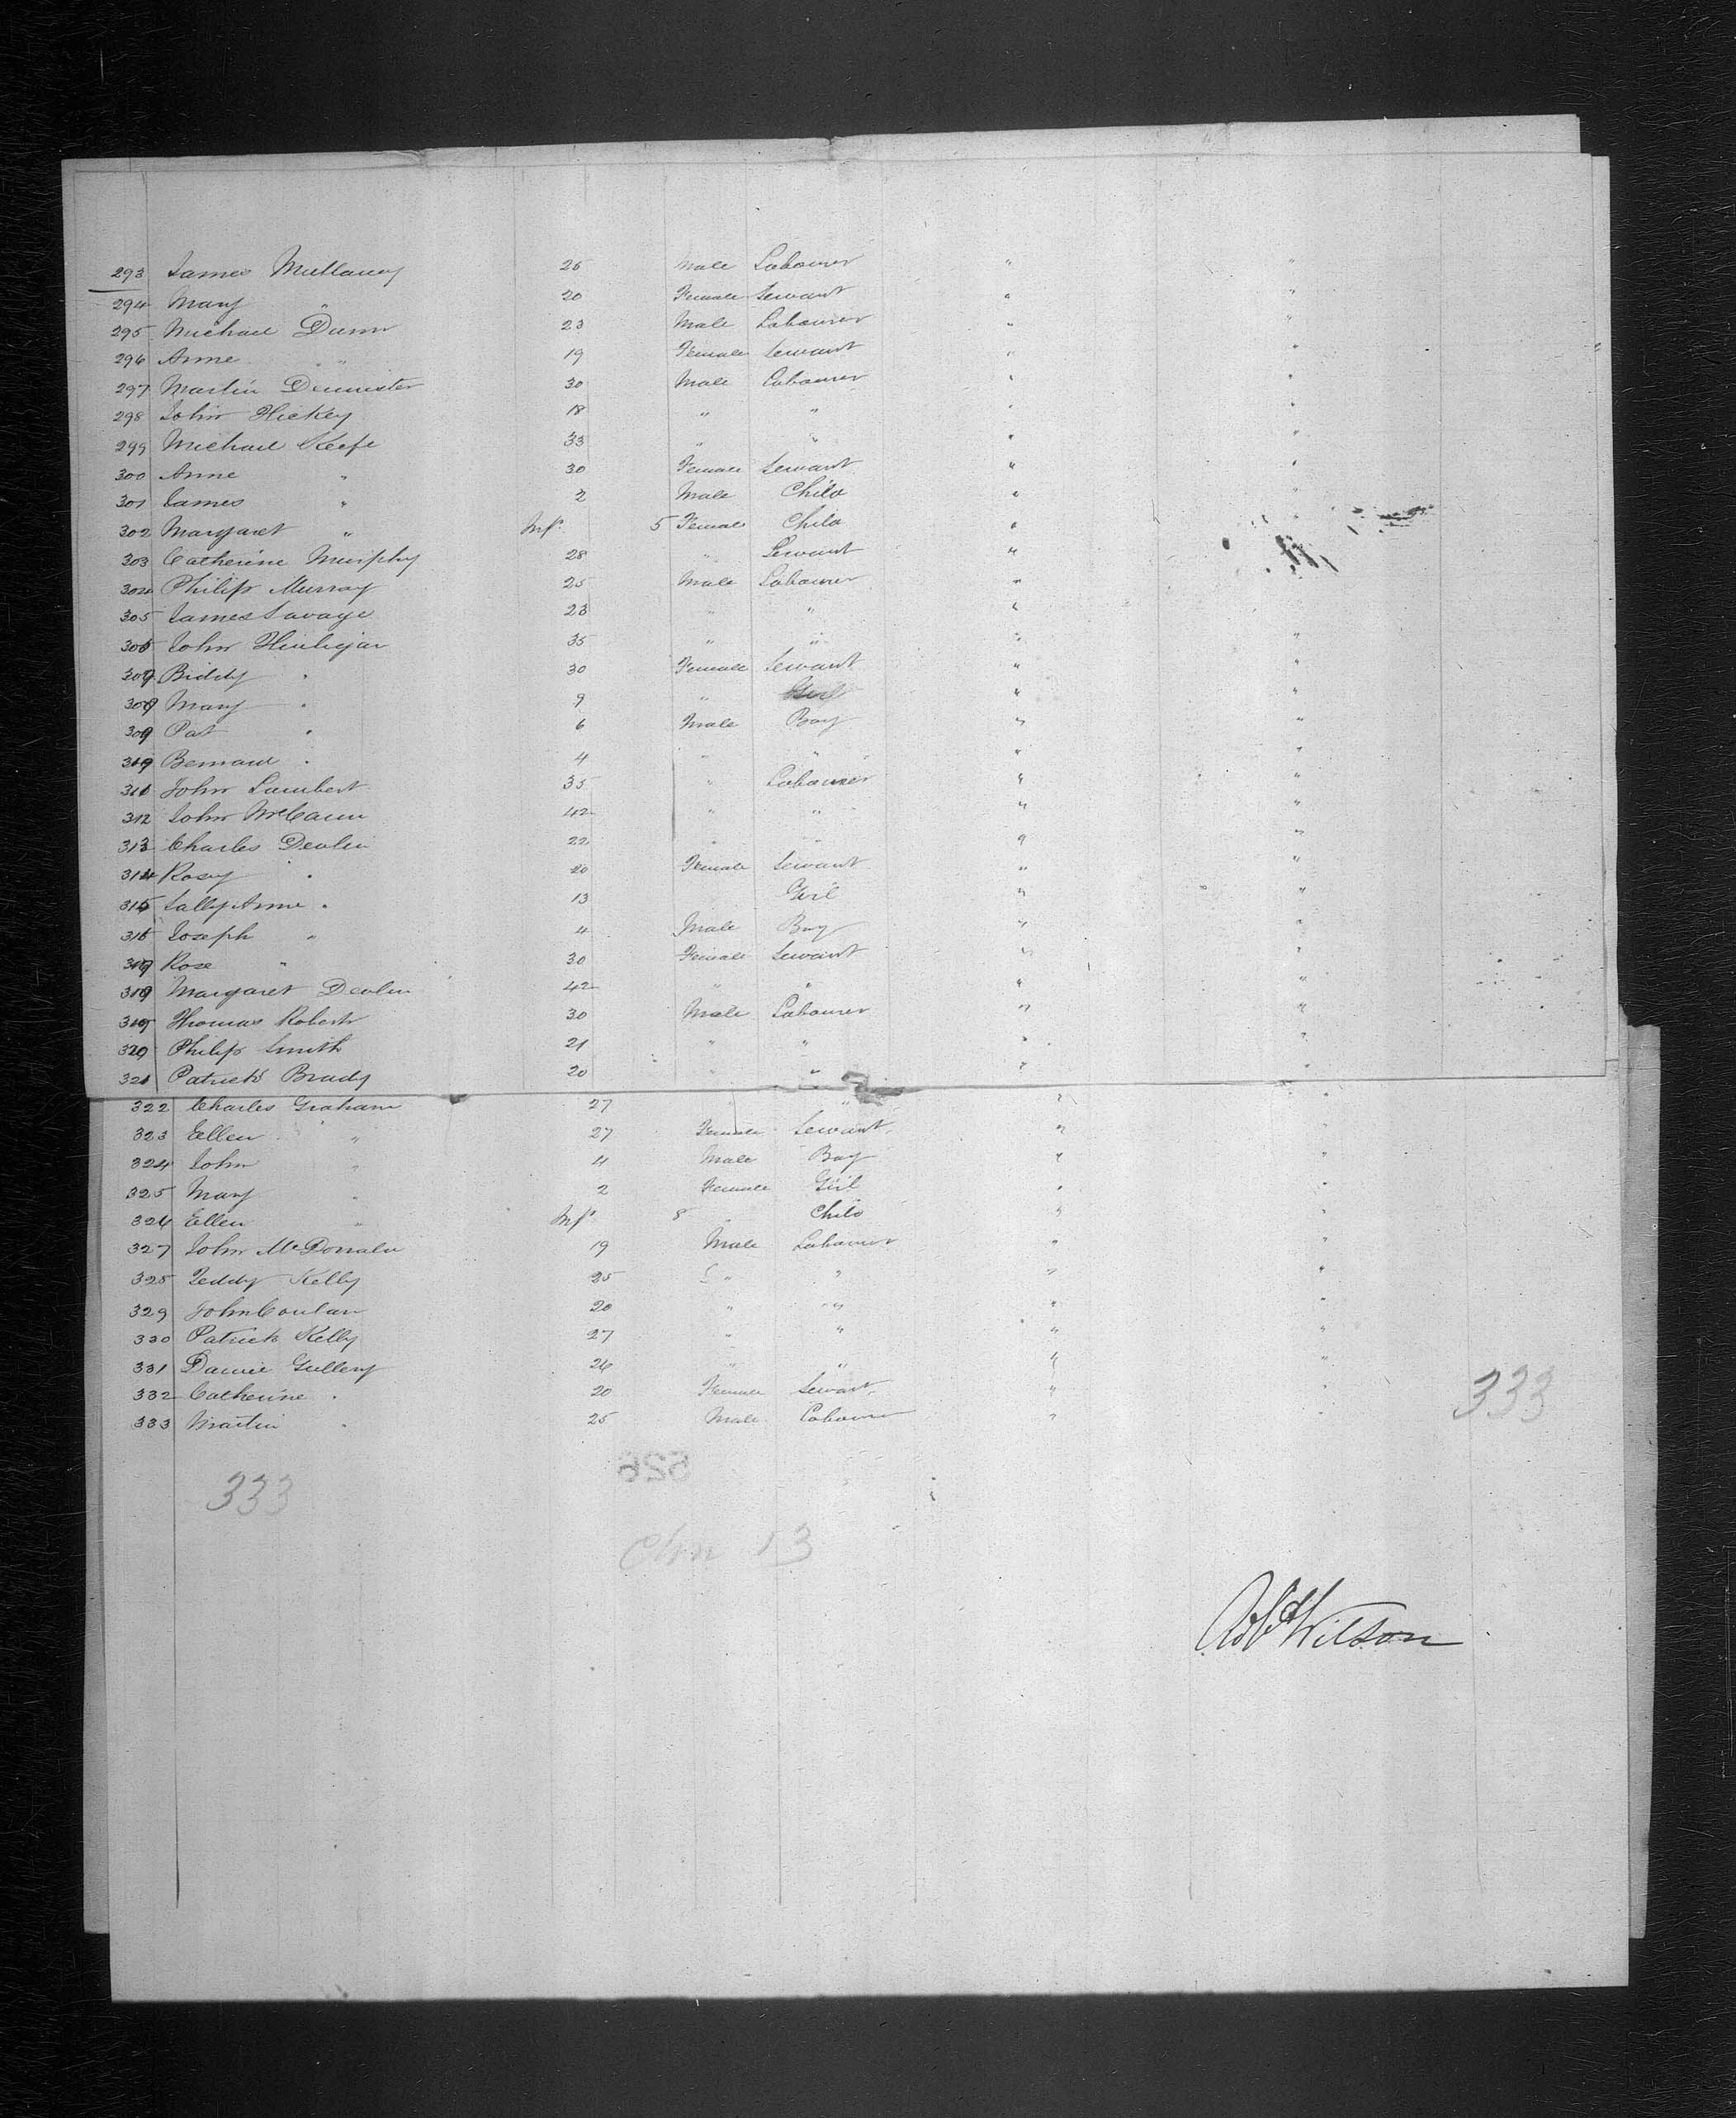 293 James Mullaney 25 Male Labourer " "
294 Mary " 20 Female Servant " "
295 Michael Dunn 23 Male Labourer " "
296 Anne " 19 Female Servant " "
297 Martin 30 Male Labourer " "
298 John Hickey 18 " " " "
299 Michael Keefe 33 " " " "
300 Anne " 30 Female Servant " "
301 James " 2 Male Child " "
302 Margaret " Inft 5 Female Child " "
303 Catherine Murphy 28 " Servant "
304 Philip Murray 25 Male Labourer "
305 James Savage 23 " " "
306 John 35 " " " "
307 Biddy " 30 Female Servant " "
308 Mary " 9 " Girl " "
309 Pat " 6 Male Boy " "
310 Bernard " 4 " " " "
311 John Lambert 35 " Labourer " "
312 John McCann 42 " " " "
313 Charles Devlin 22 " " " "
314 Rosey " 20 Female Servant " "
315 Sally Anne " 13 Girl " "
316 Joseph " 4 Male Boy " "
317 Rose " 30 Female Servant " "
318 Margaret Devlin 42 " " " "
319 Thomas Roberts 30 Male Labourer " "
320 Philip Smith 21 " " " "
321 Patrick Brady 20 " " " "
322 Charles Graham 27 " " " "
323 Ellen " 27 Female Servant " "
324 John " 4 Male Boy " "
325 Mary " 2 Female Girl " "
326 Ellen " Inft 8 " Child " "
327 John McDonald 19 Male Labourer " "
328 Teddy Kelly 35 " " " "
329 John Conlan 20 " " " "
330 Patrick Kelly 27 " " " "
331 26 " " " "
332 Catherine " 20 Female Servant " "
333 Martin " 25 Male Labourer " "
333
333
526
13
Robt Wilson